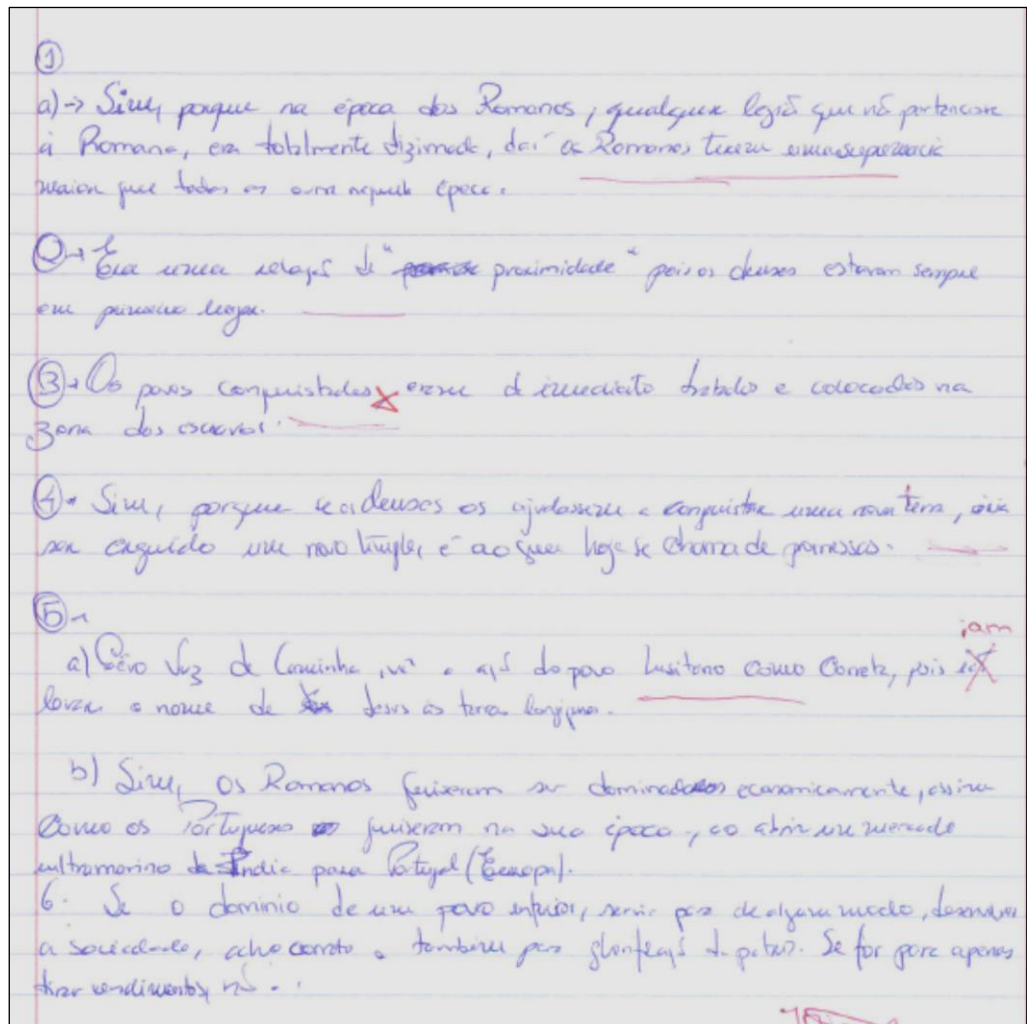 ①
a) → Sim, porque na época dos Romanos, qualquer legião que não pertencesse
à Romana, era totalmente dizimada, daí os Romanos terem uma supremacia
maior que todos os outros naquela época.
② → Era uma relação de "proximidade" pois os deuses estavam sempre
em primeiro lugar.
③ → Os povos conquistados eram de imediato e colocados na
zona dos escravos.
④ - Sim, porque se os deuses os ajudassem a conquistar uma nova terra, iria
ser erguido um novo e ao que hoje se chama de promessas.
⑤ -
iam
a) Pêro Vaz de Caminha, vê a ação do povo Lusitano como Correta, pois
levar o nome de Jesus às terras longínquas.
b) Sim, os Romanos quiseram ser dominadores economicamente, assim
como os Portugueses quiseram na sua época, ao abrir um mercado
ultramarino da Índia para Portugal (Europa).
6. Se o domínio de um povo inferior, servir para de algum modo, desenvolver
a sociedade, acho correto e também para glorificação da pátria. Se for para apenas
tirar rendimentos, não.